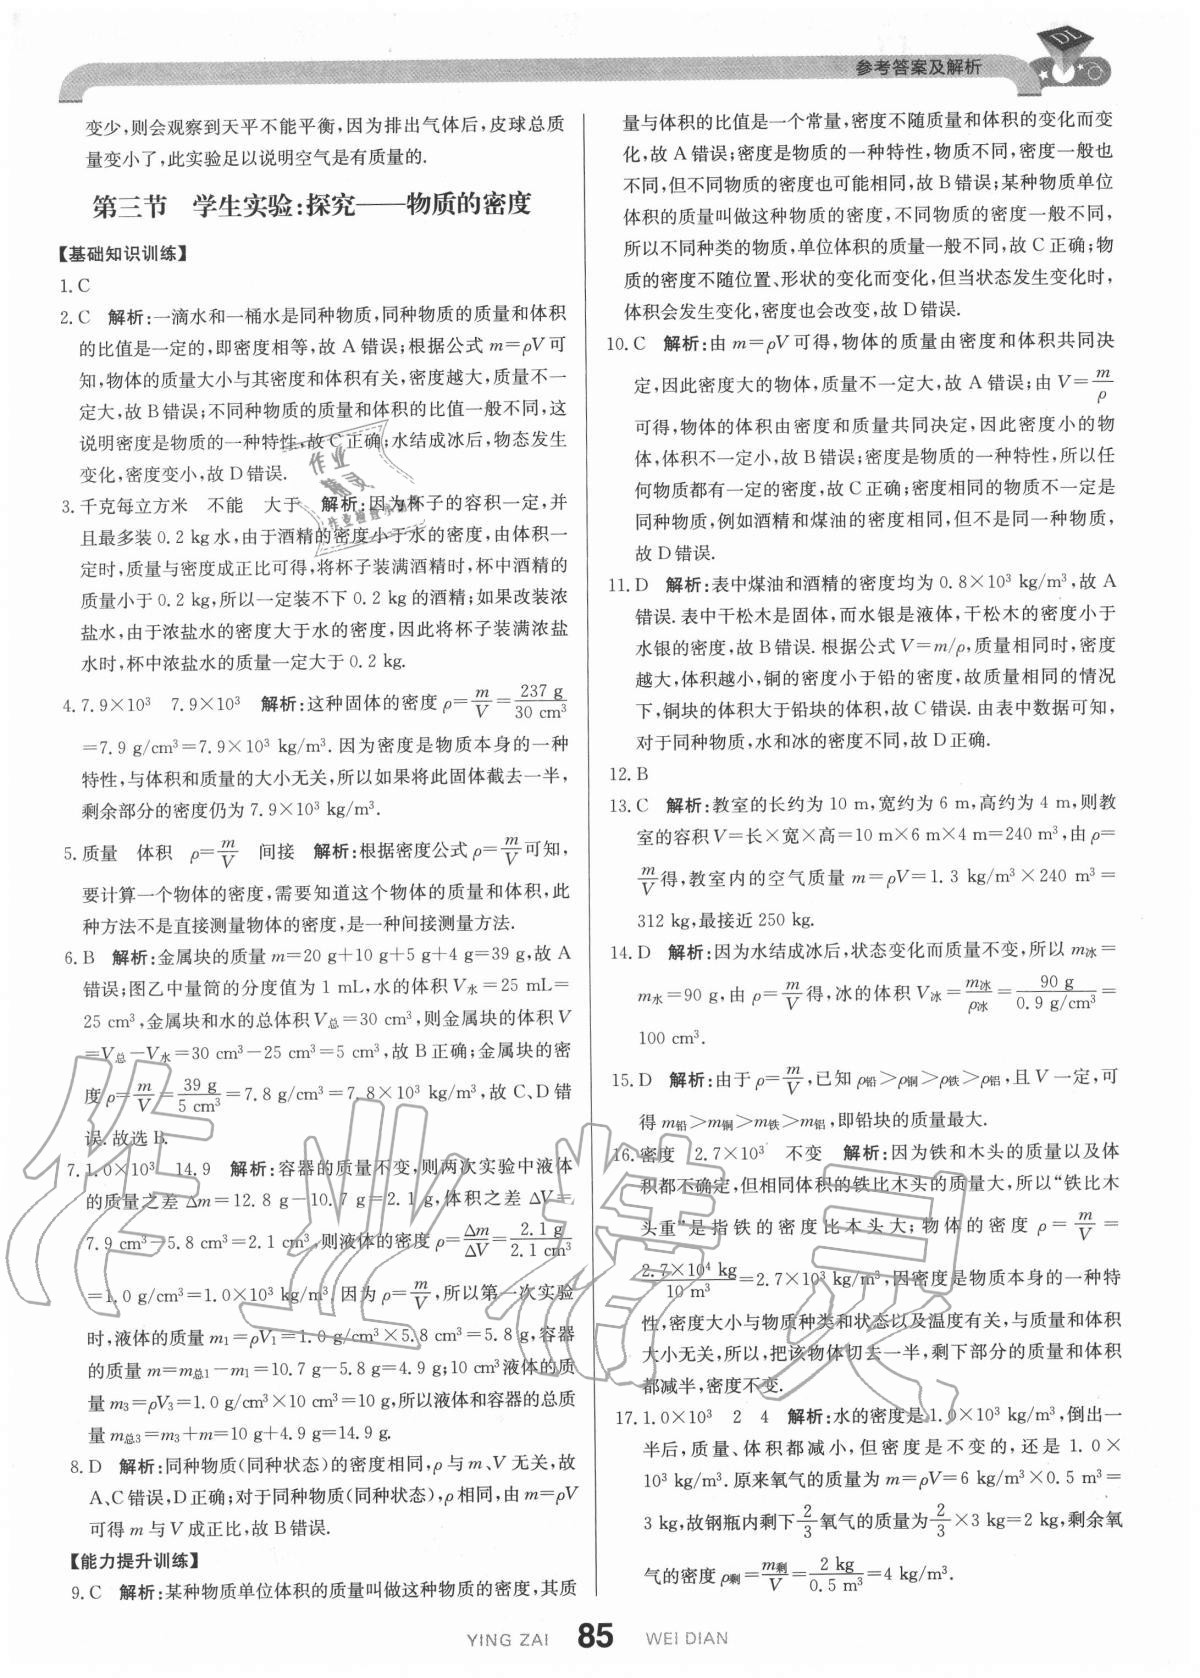 参考答案及解析
变少,则会观察到天平不能平衡,因为排出气体后,皮球总质
量变小了,此实验足以说明空气是有质量的.
第三节 学生实验:探究——物质的密度
【基础知识训练】
1. C
2. C 解析:一滴水和一桶水是同种物质,同种物质的质量和体积
的比值是一定的,即密度相等,故 A 错误;根据公式 m=ρV 可
知,物体的质量大小与其密度和体积有关,密度越大,质量不一
定大,故 B 错误;不同种物质的质量和体积的比值一般不同,这
说明密度是物质的一种特性,故 C 正确;水结成冰后,物态发生
变化,密度变小,故 D 错误.
3. 千克每立方米 不能 大于 解析:因为杯子的容积一定,并
且最多装 0.2 kg 水,由于酒精的密度小于水的密度,由体积一
定时,质量与密度成正比可得,将杯子装满酒精时,杯中酒精的
质量小于 0.2 kg,所以一定装不下 0.2 kg 的酒精;如果改装浓
盐水,由于浓盐水的密度大于水的密度,因此将杯子装满浓盐
水时,杯中浓盐水的质量一定大于 0.2 kg.
4. 7.9×10³ 7.9×10³ 解析:这种固体的密度 ρ=m/V=237 g/30 cm³
=7.9 g/cm³=7.9×10³ kg/m³.因为密度是物质本身的一种
特性,与体积和质量的大小无关,所以如果将此固体截去一半,
剩余部分的密度仍为 7.9×10³ kg/m³.
5. 质量 体积 ρ=m/V 间接 解析:根据密度公式 ρ=m/V可知,
要计算一个物体的密度,需要知道这个物体的质量和体积,此
种方法不是直接测量物体的密度,是一种间接测量方法.
6. B 解析:金属块的质量 m=20 g+10 g+5 g+4 g=39 g,故 A
错误;图乙中量筒的分度值为 1 mL,水的体积 V水=25 mL=
25 cm³,金属块和水的总体积 V总=30 cm³,则金属块的体积 V
=V总-V水=30 cm³-25 cm³=5 cm³,故 B 正确;金属块的密
度 ρ=m/V=39 g/5 cm³=7.8 g/cm³=7.8×10³ kg/m³,故 C、D 错
误.故选 B.
7. 1.0×10³ 14.9 解析:容器的质量不变,则两次实验中液体
的质量之差 Δm=12.8 g-10.7 g=2.1 g,体积之差 ΔV=
7.9 cm³-5.8 cm³=2.1 cm³,则液体的密度 ρ=Δm/ΔV=2.1 g/2.1 cm³
=1.0 g/cm³=1.0×10³ kg/m³.因为 ρ=m/V,所以第一次实验
时,液体的质量 m₁=ρV₁=1.0 g/cm³×5.8 cm³=5.8 g,容器
的质量 m=m总1-m₁=10.7 g-5.8 g=4.9 g;10 cm³液体的质
量 m₃=ρV₃=1.0 g/cm³×10 cm³=10 g,所以液体和容器的总质
量 m总3=m₃+m=10 g+4.9 g=14.9 g.
8. D 解析:同种物质(同种状态)的密度相同,ρ 与 m、V 无关,故
A、C 错误,D 正确;对于同种物质(同种状态),ρ 相同,由 m=ρV
可得 m 与 V 成正比,故 B 错误.
【能力提升训练】
9. C 解析:某种物质单位体积的质量叫做这种物质的密度,其质
量与体积的比值是一个常量,密度不随质量和体积的变化而变
化,故 A 错误;密度是物质的一种特性,物质不同,密度一般也
不同,但不同物质的密度也可能相同,故 B 错误;某种物质单位
体积的质量叫做这种物质的密度,不同物质的密度一般不同,
所以不同种类的物质,单位体积的质量一般不同,故 C 正确;物
质的密度不随位置、形状的变化而变化,但当状态发生变化时,
体积会发生变化,密度也会改变,故 D 错误.
10. C 解析:由 m=ρV 可得,物体的质量由密度和体积共同决
定,因此密度大的物体,质量不一定大,故 A 错误;由 V=m/ρ
可得,物体的体积由密度和质量共同决定,因此密度小的物
体,体积不一定小,故 B 错误;密度是物质的一种特性,所以任
何物质都有一定的密度,故 C 正确;密度相同的物质不一定是
同种物质,例如酒精和煤油的密度相同,但不是同一种物质,
故 D 错误.
11. D 解析:表中煤油和酒精的密度均为 0.8×10³ kg/m³,故 A
错误.表中干松木是固体,而水银是液体,干松木的密度小于
水银的密度,故 B 错误.根据公式 V=m/ρ,质量相同时,密度
越大,体积越小,铜的密度小于铅的密度,故质量相同的情况
下,铜块的体积大于铅块的体积,故 C 错误.由表中数据可知,
对于同种物质,水和冰的密度不同,故 D 正确.
12. B
13. C 解析:教室的长约为 10 m,宽约为 6 m,高约为 4 m,则教
室的容积 V=长×宽×高=10 m×6 m×4 m=240 m³,由 ρ=
m/V得,教室内的空气质量 m=ρV=1.3 kg/m³×240 m³=
312 kg,最接近 250 kg.
14. D 解析:因为水结成冰后,状态变化而质量不变,所以 m冰=
m水=90 g,由 ρ=m/V得,冰的体积 V冰=m冰/ρ冰=90 g/0.9 g/cm³=
100 cm³.
15. D 解析:由于 ρ=m/V,已知 ρ铅>ρ铜>ρ铁>ρ铝,且 V 一定,可
得 m铅>m铜>m铁>m铝,即铅块的质量最大.
16. 密度 2.7×10³ 不变 解析:因为铁和木头的质量以及体
积都不确定,但相同体积的铁比木头的质量大,所以“铁比木
头重”是指铁的密度比木头大;物体的密度 ρ=m/V=
2.7×10⁴ kg/10 m³=2.7×10³ kg/m³,因密度是物质本身的一种特
性,密度大小与物质种类和状态以及温度有关,与质量和体积
大小无关,所以,把该物体切去一半,剩下部分的质量和体积
都减半,密度不变.
17. 1.0×10³ 2 4 解析:水的密度是1.0×10³ kg/m³,倒出一
半后,质量、体积都减小,但密度是不变的,还是 1.0×
10³ kg/m³.原来氧气的质量为 m=ρV=6 kg/m³×0.5 m³=
3 kg,故钢瓶内剩下2/3氧气的质量为2/3×3 kg=2 kg,剩余氧
气的密度 ρ剩=m剩/V=2 kg/0.5 m³=4 kg/m³.
YING ZAI 85 WEI DIAN